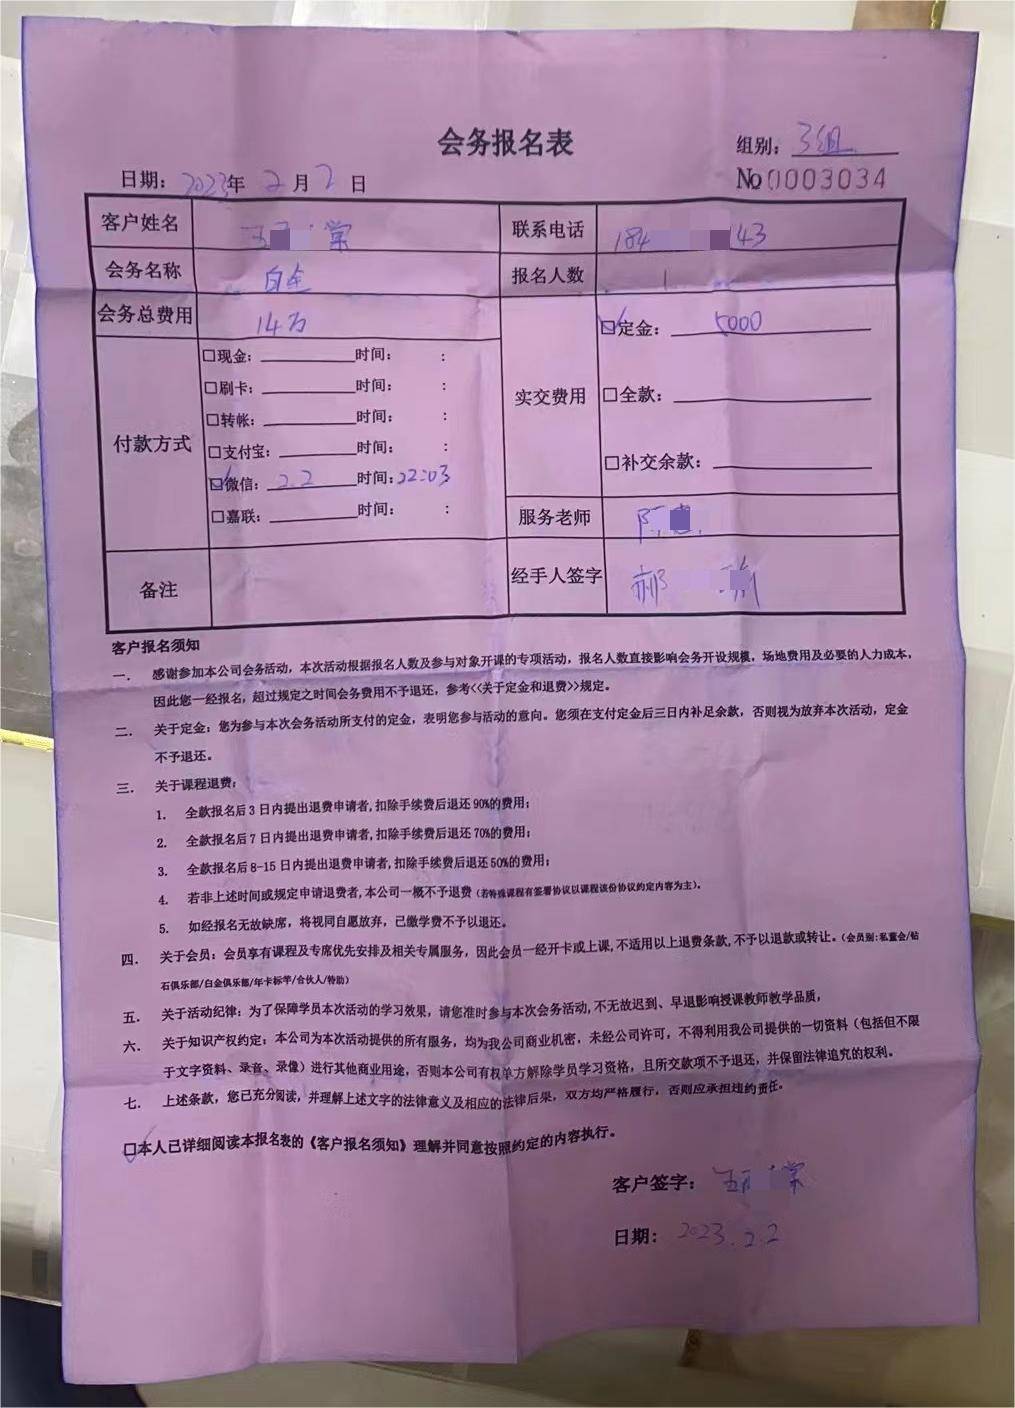 会务报名表
组别：3组
日期：2023年 2月 2日
No 0003034
客户姓名 王 棠 联系电话 184 43
会务名称 白金 报名人数 1
会务总费用 14万
实交费用
☑定金：5000
□全款：
□补交余款：
付款方式
□现金： 时间： ：
□刷卡： 时间： ：
□转帐： 时间： ：
□支付宝： 时间： ：
☑微信：2.2 时间：22:03
□嘉联： 时间： ：
服务老师 陈
备注
经手人签字 郝
客户报名须知
一. 感谢参加本公司会务活动，本次活动根据报名人数及参与对象开课的专项活动，报名人数直接影响会务开设规模，场地费用及必要的人力成本，
因此您一经报名，超过规定之时间会务费用不予退还，参考<<关于定金和退费>>规定。
二. 关于定金：您为参与本次会务活动所支付的定金，表明您参与活动的意向。您须在支付定金后三日内补足余款，否则视为放弃本次活动，定金
不予退还。
三. 关于课程退费：
1. 全款报名后3日内提出退费申请者,扣除手续费后退还90%的费用；
2. 全款报名后7日内提出退费申请者,扣除手续费后退还70%的费用；
3. 全款报名后8-15日内提出退费申请者,扣除手续费后退还50%的费用；
4. 若非上述时间或规定申请退费者,本公司一概不予退费（若特殊课程有签署协议以课程该份协议约定内容为主）。
5. 如经报名无故缺席，将视同自愿放弃，已缴学费不予以退还。
四. 关于会员：会员享有课程及专席优先安排及相关专属服务，因此会员一经开卡或上课,不适用以上退费条款,不予以退款或转让。（会员别:私董会/钻
石俱乐部/白金俱乐部/年卡标竿/合伙人/特助）
五. 关于活动纪律：为了保障学员本次活动的学习效果，请您准时参与本次会务活动,不无故迟到、早退影响授课教师教学品质，
六. 关于知识产权约定：本公司为本次活动提供的所有服务，均为我公司商业机密，未经公司许可，不得利用我公司提供的一切资料（包括但不限
于文字资料、录音、录像）进行其他商业用途，否则本公司有权单方解除学员学习资格，且所交款项不予退还，并保留法律追究的权利。
七. 上述条款，您已充分阅读，并理解上述文字的法律意义及相应的法律后果，双方均严格履行，否则应承担违约责任。
☑本人已详细阅读本报名表的《客户报名须知》理解并同意按照约定的内容执行。
客户签字：王 棠
日期：2023.2.2